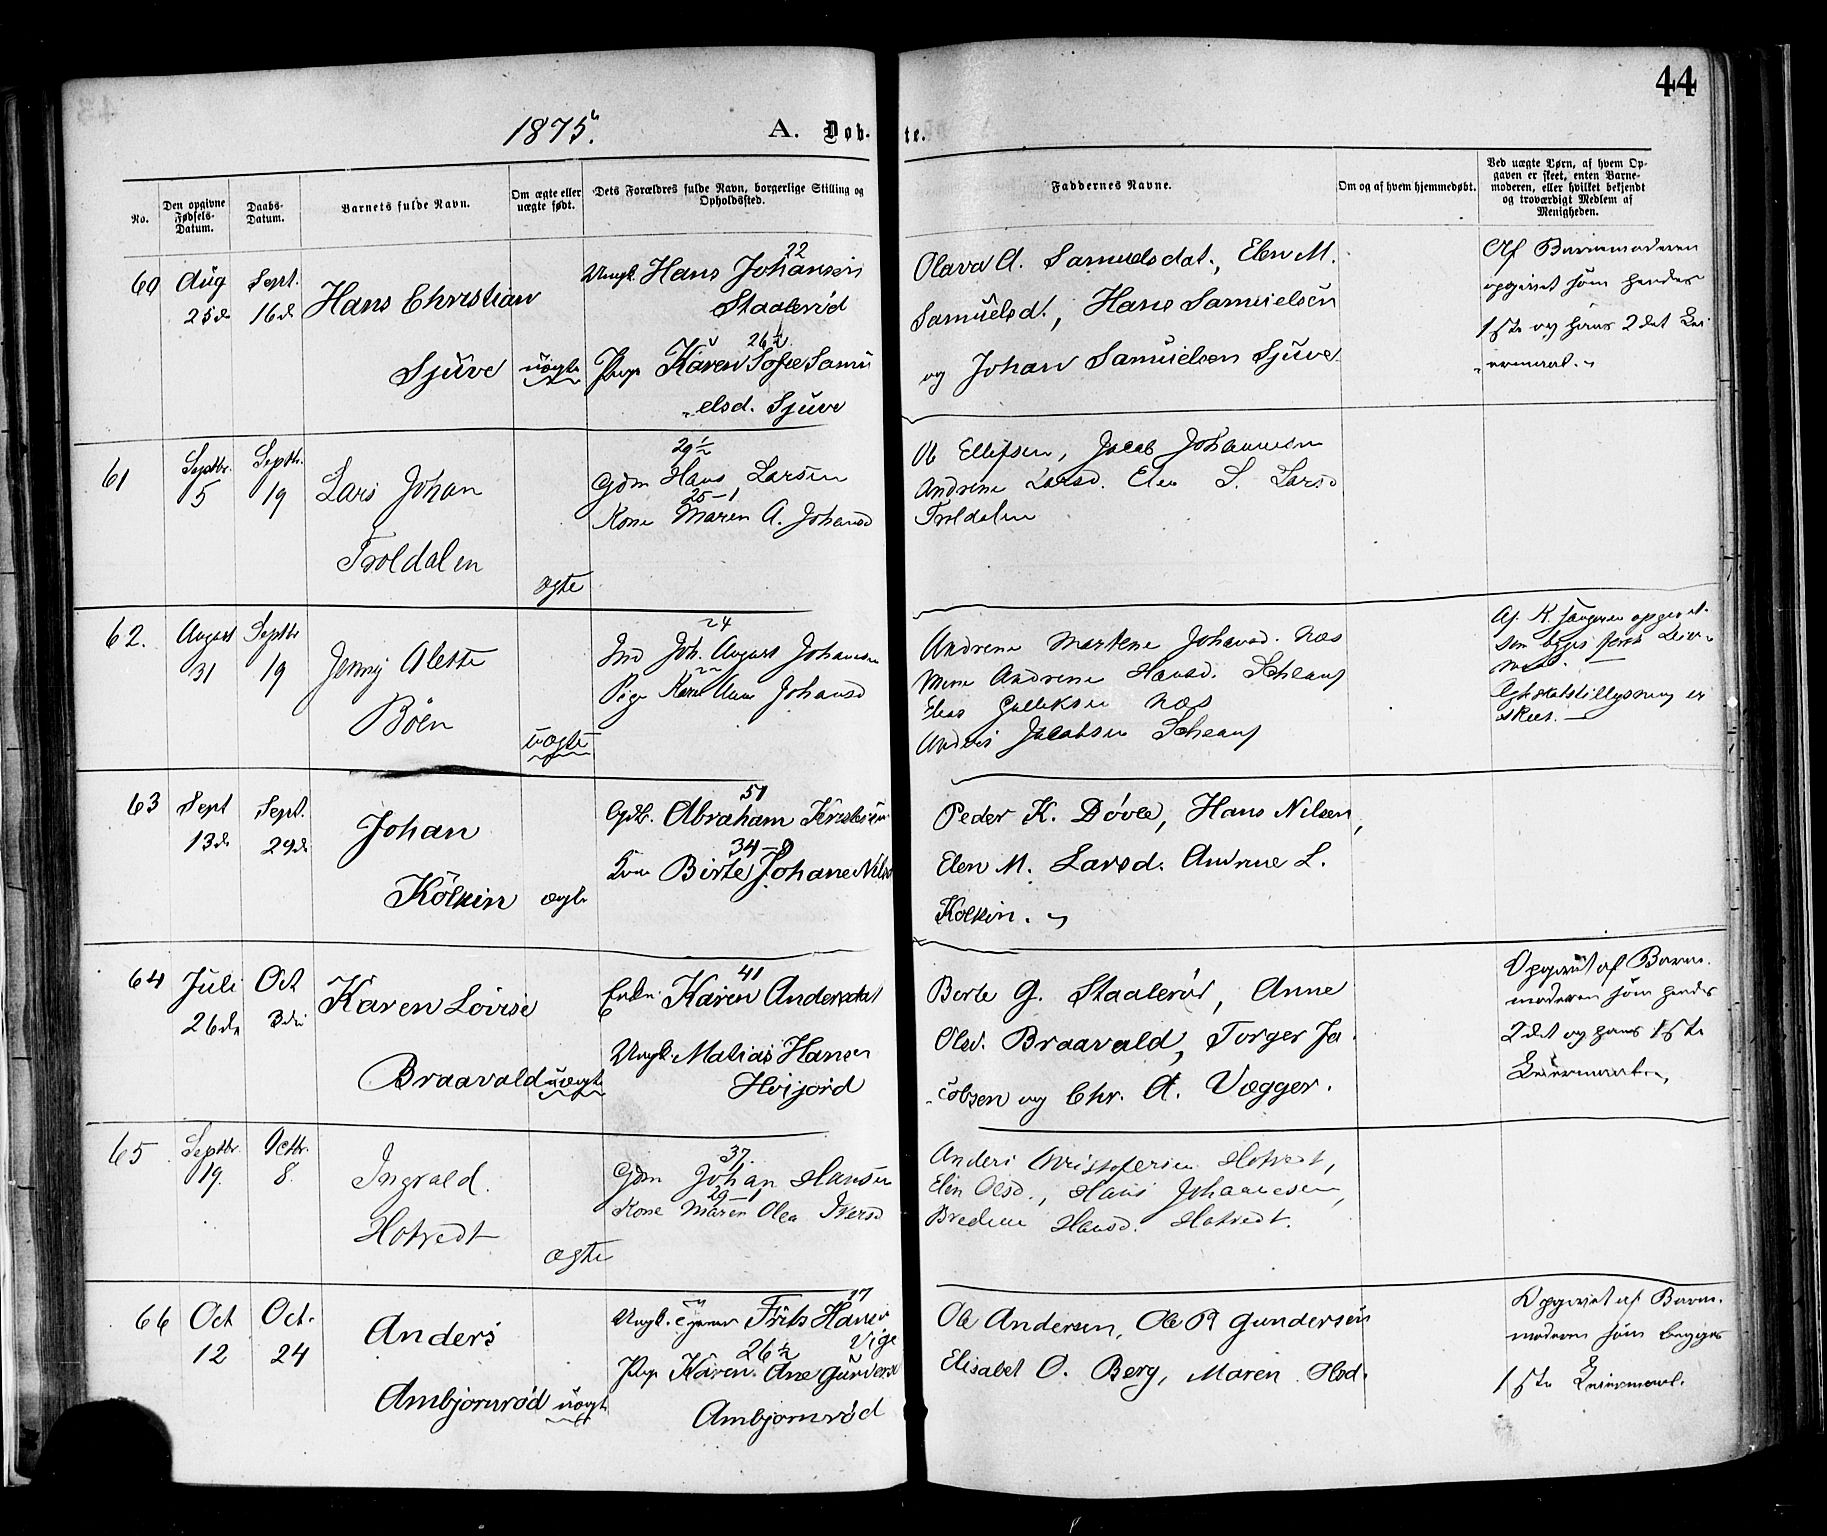 44
1875.
A. Døb-
te.
No.
Den opgivne Fødsels-Datum.
Daabs-Datum.
Barnets fulde Navn.
Om ægte eller uægte født.
Dets Forældres fulde Navn, borgerlige Stilling og Opholdssted.
Faddernes Navne.
Om og af hvem hjemmedøbt.
Ved uægte Børn, af hvem Op-
gaven er skeet, enten Barne-
moderen, eller hvilket bekjendt
og troværdigt Medlem af
Menigheden.
60
Aug
25de
Sept.
16de
Hans Christian
Sjuve
uægte
22
Ungk. Hans Johansen
Staalerød
26½
Pige Karen Sofie Samu
elsd. Sjuve
Olava A. Samuelsdat., Elen M.
Samuelsd., Hans Samuelsen
og Johan Samuelsen Sjuve
Af Barnemoderen
opgivet som hendes
1ste og hans 2det Lei
ermaal.
61
Septbr.
5
Septbr.
19
Lars Johan
Troldalen
ægte
29½
Gdm Hans Larsen
25-1
Kone Maren A. Johansd
Ol Ellefsen, Jacob Johannesen
Andrine Larsd. Elen S. Larsd
Troldalen
62.
August
31
Septbr
19
Jenny Alette
Böen
uægte
24
Ind Joh. August Johansen
22
Pige Karen Anne Johansd
Andrine Martine Johansd. Næs
Mine Andrine Hansd.
Elias Gulliksen Næs
Jacobsen
Af K. opgivet
som begges første Leier-
maal.
er
skeet.
63
Sept
13de
Sept.
29de
Johan
Kölkin
ægte
51
Gdb. Abraham Kristensen
34-9
Kone Birte Johane Nilsd
Peder K. Døvle, Hans Nilsen,
Elen M. Larsd. Andrine L.
Kölkin.
64
Juli
26de
Oct
3die
Karen Lovise
Braavald
uægte
41
Enke Karen Andersdat
Ungk. Matias Hansen
Hoijord
Berte G. Staalerød, Anne
Olsd. Braavald, Torger Ja-
cobsen og Chr. A. Vegger.
Opgivet af Barne-
moderen som hendes
2det og hans 1ste
Leiermaal.
65
Septbr.
19.
Octbr.
8.
Ingvald.
Hotvedt
ægte
37.
Gdm Johan Hansen
29-1
Kone Maren Olea Iversd
Anders Kristofersen Hotvedt,
Elen Olsd., Hans Johannesen,
Bredine Hansd. Hotvedt.
66
Oct
12
Oct.
24
Anders
Ambjörnröd
uægte
27
Ungk. Frits Hansen
Vige
26½
Pige Karen Ane Gundersd
Ambjörnröd
Ole Andersen, Ole P Gundersen
Elisabet O. Berg, Maren Hsd.
Opgivet af Barne-
moderen som begges
1ste Leiermaal.